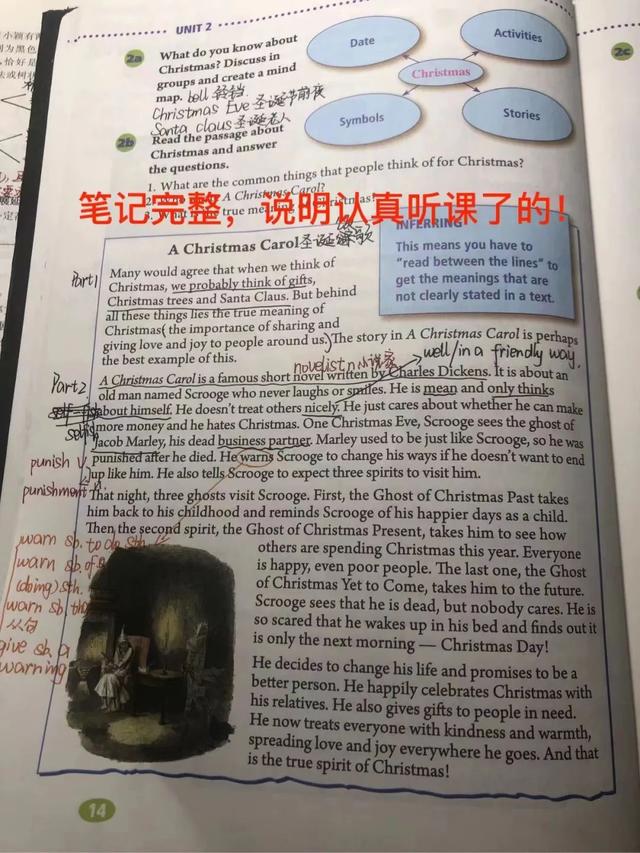 UNIT 2
2a
What do you know about
Christmas? Discuss in
groups and create a mind
map. bell 铃铛
Christmas Eve 圣诞节前夜
Santa claus 圣诞老人
Date
Activities
Christmas
Symbols
Stories
2b
Read the passage about
Christmas and answer
the questions.
1. What are the common things that people think of for Christmas?
A Christmas Carol?
true
笔记完整，说明认真听课了的！
2c
A Christmas Carol 圣诞 歌
INFERRING
This means you have to
"read between the lines" to
get the meanings that are
not clearly stated in a text.
Part1
Many would agree that when we think of
Christmas, we probably think of gifts,
Christmas trees and Santa Claus. But behind
all these things lies the true meaning of
Christmas(the importance of sharing and
giving love and joy to people around us.) The story in A Christmas Carol is perhaps
the best example of this.
novelist n 小说家
well/in a friendly way.
Part2
A Christmas Carol is a famous short novel written by Charles Dickens. It is about an
old man named Scrooge who never laughs or smiles. He is mean and only thinks
about himself. He doesn't treat others nicely. He just cares about whether he can make
more money and he hates Christmas. One Christmas Eve, Scrooge sees the ghost of
Jacob Marley, his dead business partner. Marley used to be just like Scrooge, so he was
punished after he died. He warns Scrooge to change his ways if he doesn't want to end
up like him. He also tells Scrooge to expect three spirits to visit him.
punish v
punishment n.
That night, three ghosts visit Scrooge. First, the Ghost of Christmas Past takes
him back to his childhood and reminds Scrooge of his happier days as a child.
Then the second spirit, the Ghost of Christmas Present, takes him to see how
others are spending Christmas this year. Everyone
is happy, even poor people. The last one, the Ghost
of Christmas Yet to Come, takes him to the future.
Scrooge sees that he is dead, but nobody cares. He is
so scared that he wakes up in his bed and finds out it
is only the next morning — Christmas Day!
warn sb. to do sth.
warn sb. of
(doing) sth.
warn sb
从句
give sb. a
warning
He decides to change his life and promises to be a
better person. He happily celebrates Christmas with
his relatives. He also gives gifts to people in need.
He now treats everyone with kindness and warmth,
spreading love and joy everywhere he goes. And that
is the true spirit of Christmas!
14